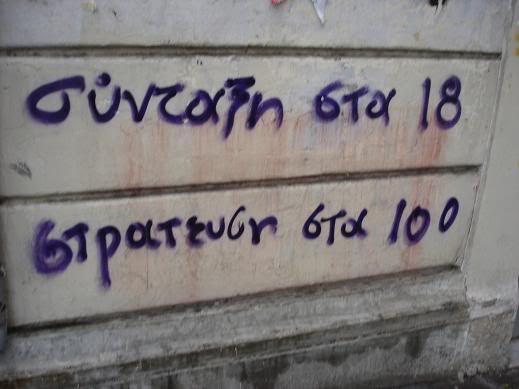 σύνταξη στα 18
στρατευση στα 100